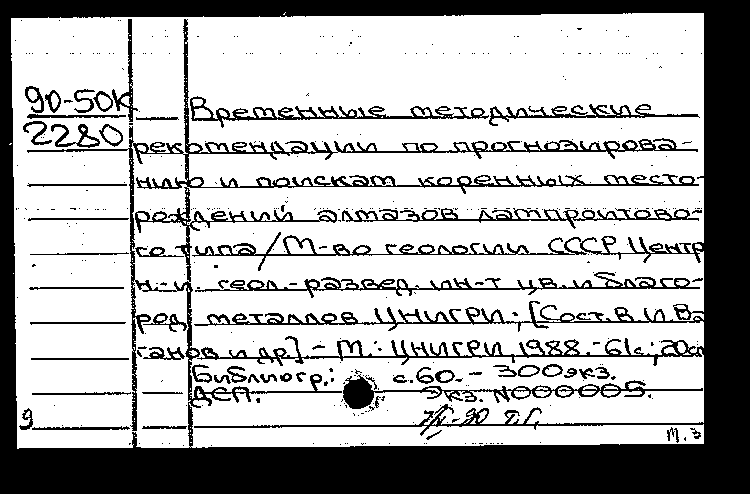 90-50К
2280
Временные методические
рекомендации по прогнозирова-
нию и поискам коренных место-
рождений алмазов лампроитово-
го типа / М-во геологии СССР, Центр
н.-и. геол.-развед. ин-т цв. и благо-
род. металлов ЦНИГРИ; [Сост. В. И. Ва
ганов и др.]. - М.: ЦНИГРИ, 1988. - 61 с.; 20 см
Библиогр.: с. 60. - 300 экз.
ДСП. Экз. N000005.
9
м. з